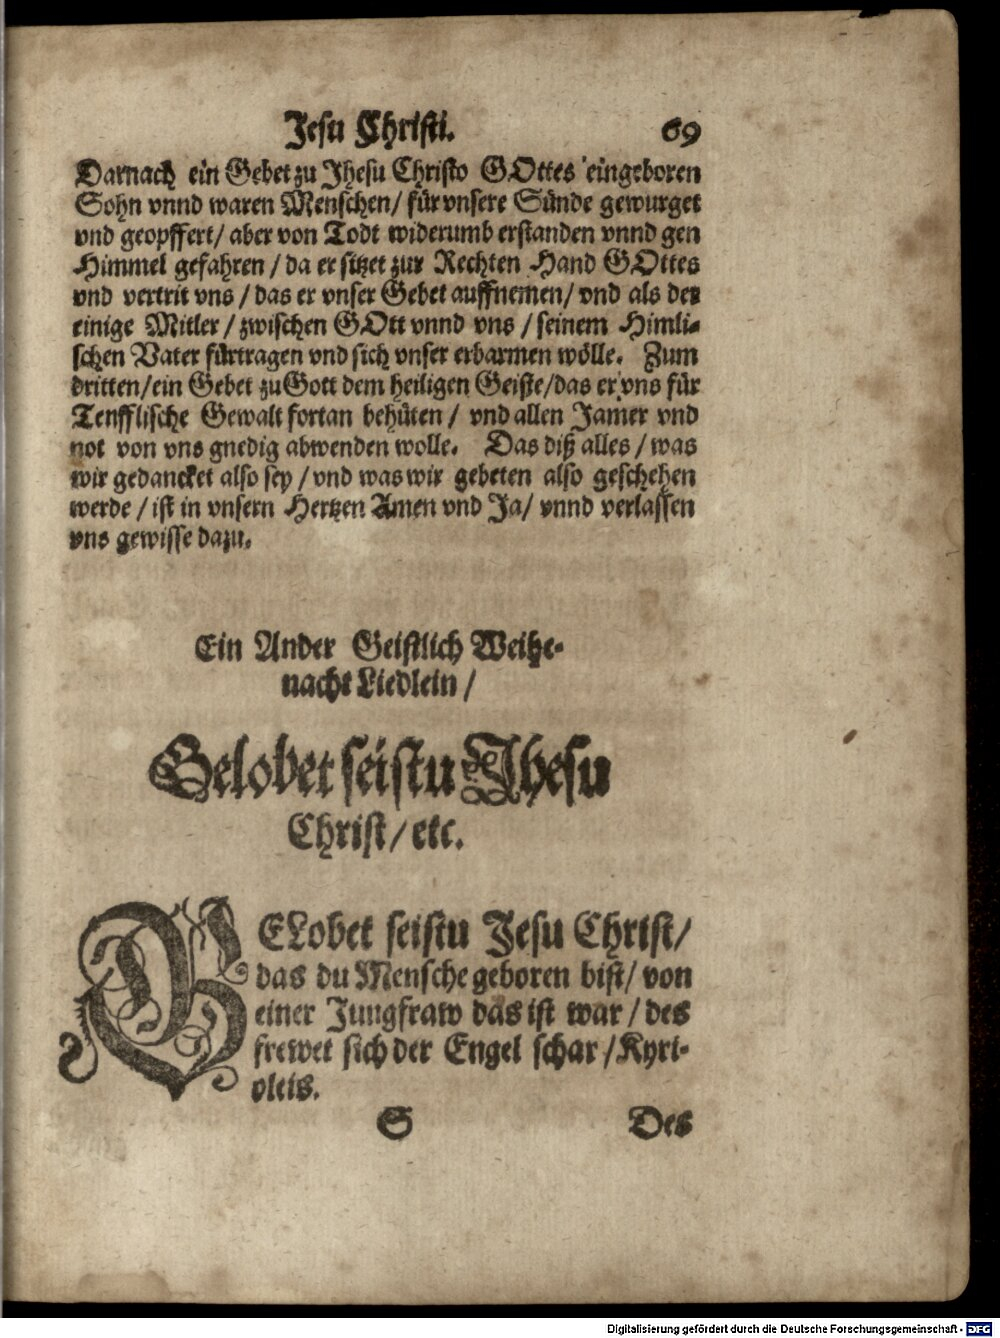 Jesu Christi. 69
Darnach ein Gebet zu Jhesu Christo GOttes eingeboren
Sohn vnnd waren Menschen/ für vnsere Sünde gewurget
vnd geopffert/ aber von Todt widerumb erstanden vnnd gen
Himmel gefahren / da er sitzet zur Rechten Hand GOttes
vnd vertrit vns / das er vnser Gebet auffnemen/ vnd als der
einige Mitler / zwischen GOtt vnnd vns / seinem Himli-
schen Vater fürtragen vnd sich vnser erbarmen wölle. Zum
dritten/ein Gebet zu Gott dem heiligen Geiste/das er vns für
Tenfflische Gewalt fortan behüten / vnd allen Jamer vnd
not von vns gnedig abwenden wolle. Das diß alles / was
wir gedancket also sey / vnd was wir gebeten also geschehen
werde / ist in vnsern Hertzen Amen vnd Ja/ vnnd verlassen
vns gewisse dazu.
Ein Ander Geistlich Weihe-
nacht Liedlein /
Gelobet seistu Jhesu
Christ/ etc.
GELobet seistu Jesu Christ/
das du Mensche geboren bist/ von
einer Jungfraw das ist war / des
frewet sich der Engel schar / Kyri-
oleis.
S Des
Digitalisierung gefördert durch die Deutsche Forschungsgemeinschaft - DFG